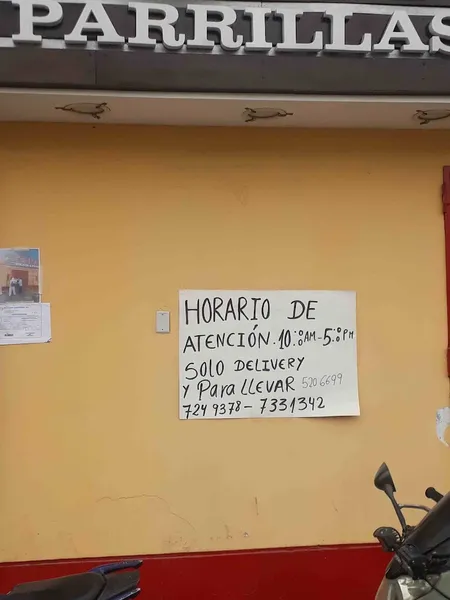 PARRILLAS
HORARIO DE
ATENCIÓN. 10:00 AM - 5:00 PM
SOLO DELIVERY
Y Para LLEVAR 520 6699
724 9378 - 7331342